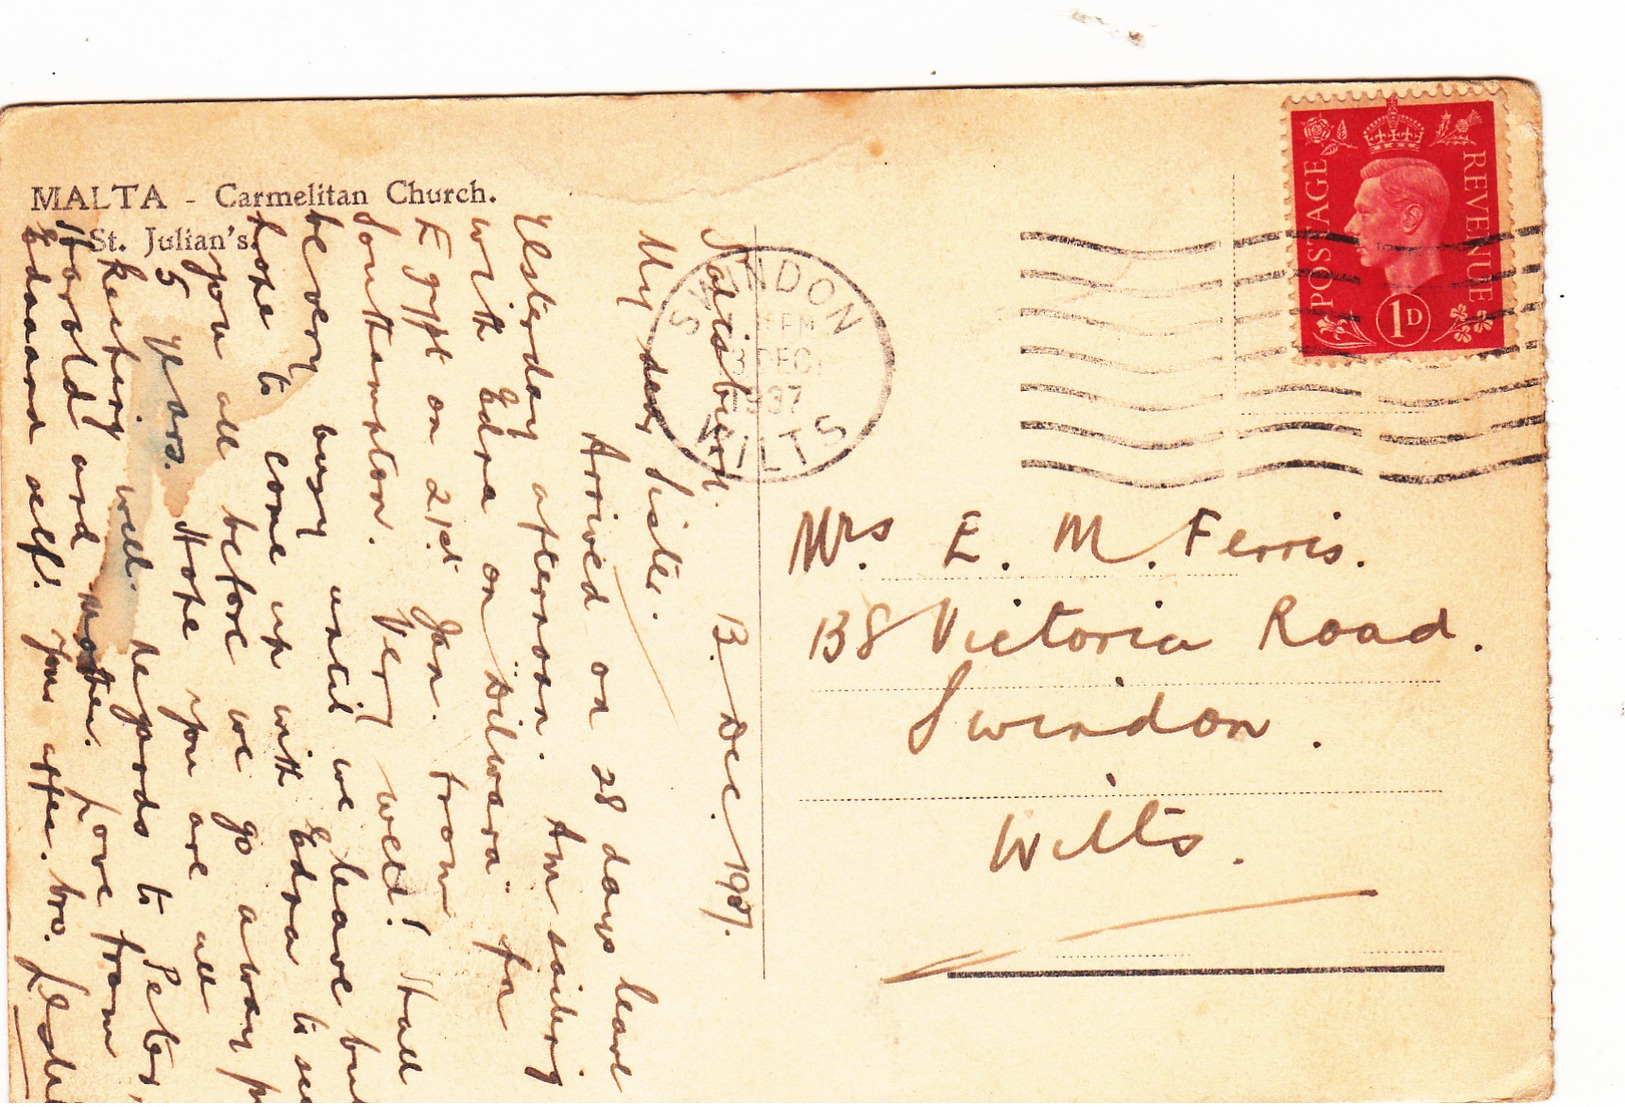 MALTA - Carmelitan Church.
St. Julian's.
Salisbury. 13. Dec. 1937.
My dear Sister.
Arrived on 28 days leave
yesterday afternoon. Am sailing
with Edna on "Dilwara" for
Egypt on 21st Jan. from
Southampton. Very well! Shall
be very busy until we leave but
hope to come up with Edna to see
you all before we go away for
5 years. Hope you are all
keeping well. Regards to Peter,
Harold and Mother. Love from
Edna and self. Your affec. bro.
SWINDON
DEC
1937
WILTS
POSTAGE
REVENUE
1D
Mrs E. M. Ferris.
138 Victoria Road.
Swindon.
Wilts.